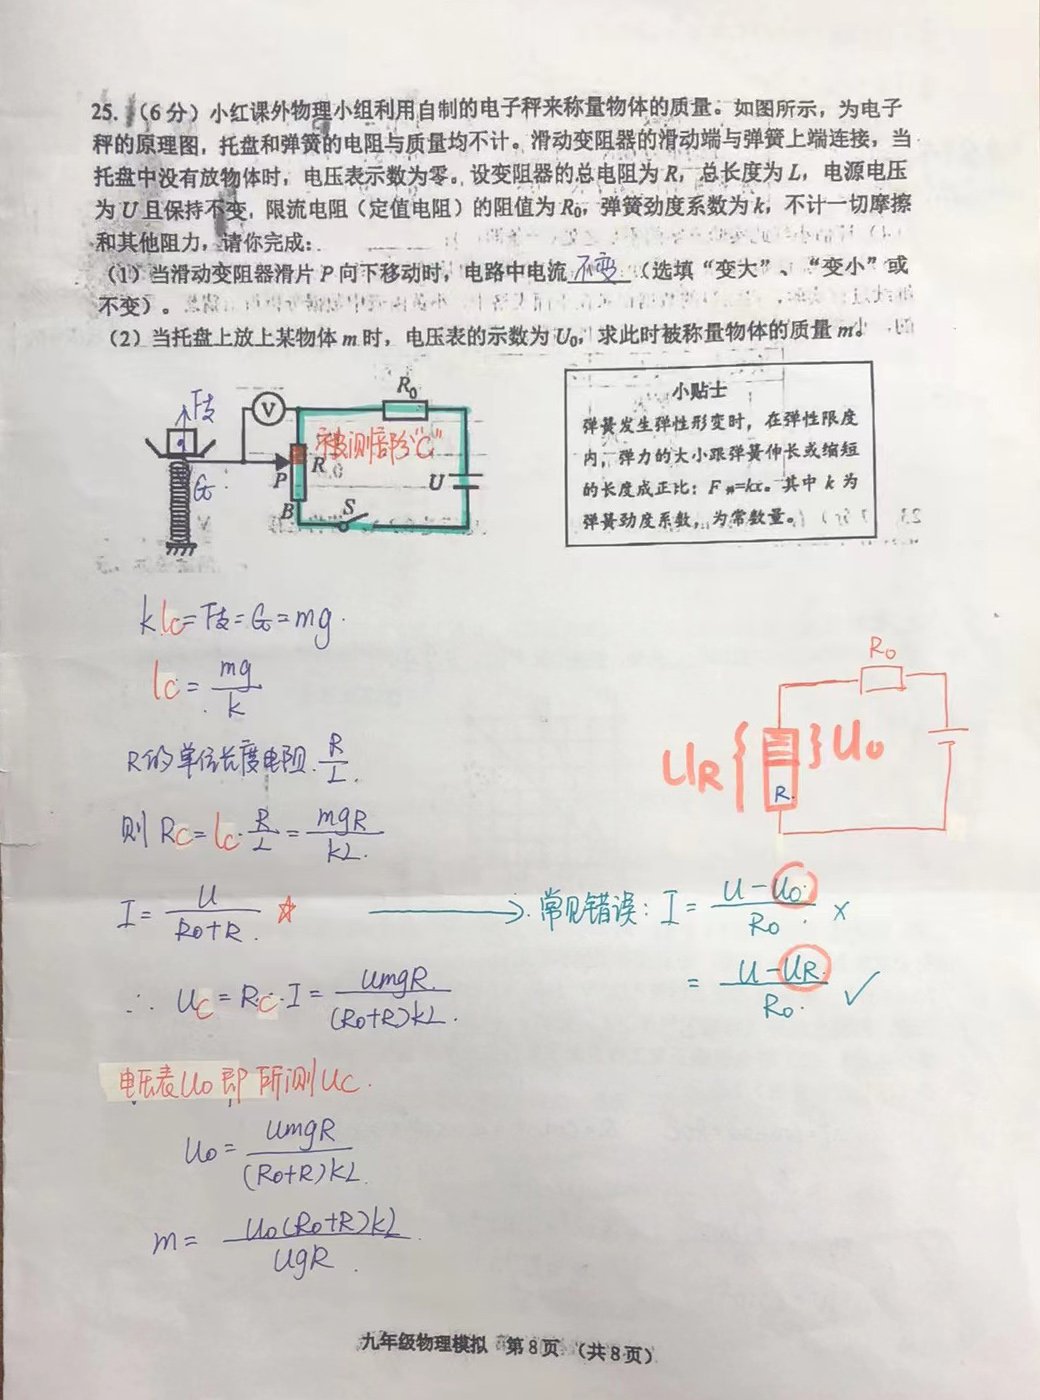 25. (6分)小红课外物理小组利用自制的电子秤来称量物体的质量。如图所示，为电子
秤的原理图，托盘和弹簧的电阻与质量均不计。滑动变阻器的滑动端与弹簧上端连接，当
托盘中没有放物体时，电压表示数为零。设变阻器的总电阻为R，总长度为L，电源电压
为U且保持不变，限流电阻（定值电阻）的阻值为R₀，弹簧劲度系数为k，不计一切摩擦
和其他阻力，请你完成：
（1）当滑动变阻器滑片P向下移动时，电路中电流 不变 （选填“变大”、“变小”或
不变）。
（2）当托盘上放上某物体m时，电压表的示数为U₀，求此时被称量物体的质量m。
F支
G
V
R₀
被测部分“C”
R
P
B
S
U
小贴士
弹簧发生弹性形变时，在弹性限度
内，弹力的大小跟弹簧伸长或缩短
的长度成正比：F弹=kx。其中k为
弹簧劲度系数，为常数量。
klc=F支=G=mg.
lc = mg/k
R的单位长度电阻 R/L.
则 Rc = lc·R/L = mgR/kL.
I = U/(R₀+R). ☆
常见错误: I = (U-U₀)/R₀ ×
= (U-UR)/R₀. ✓
∴ Uc = Rc·I = UmgR/(R₀+R)kL.
电压表U₀即所测Uc.
U₀ = UmgR/(R₀+R)kL.
m = U₀(R₀+R)kL/UgR.
R₀
UR { } U₀
R.
九年级物理模拟 第8页 （共8页）